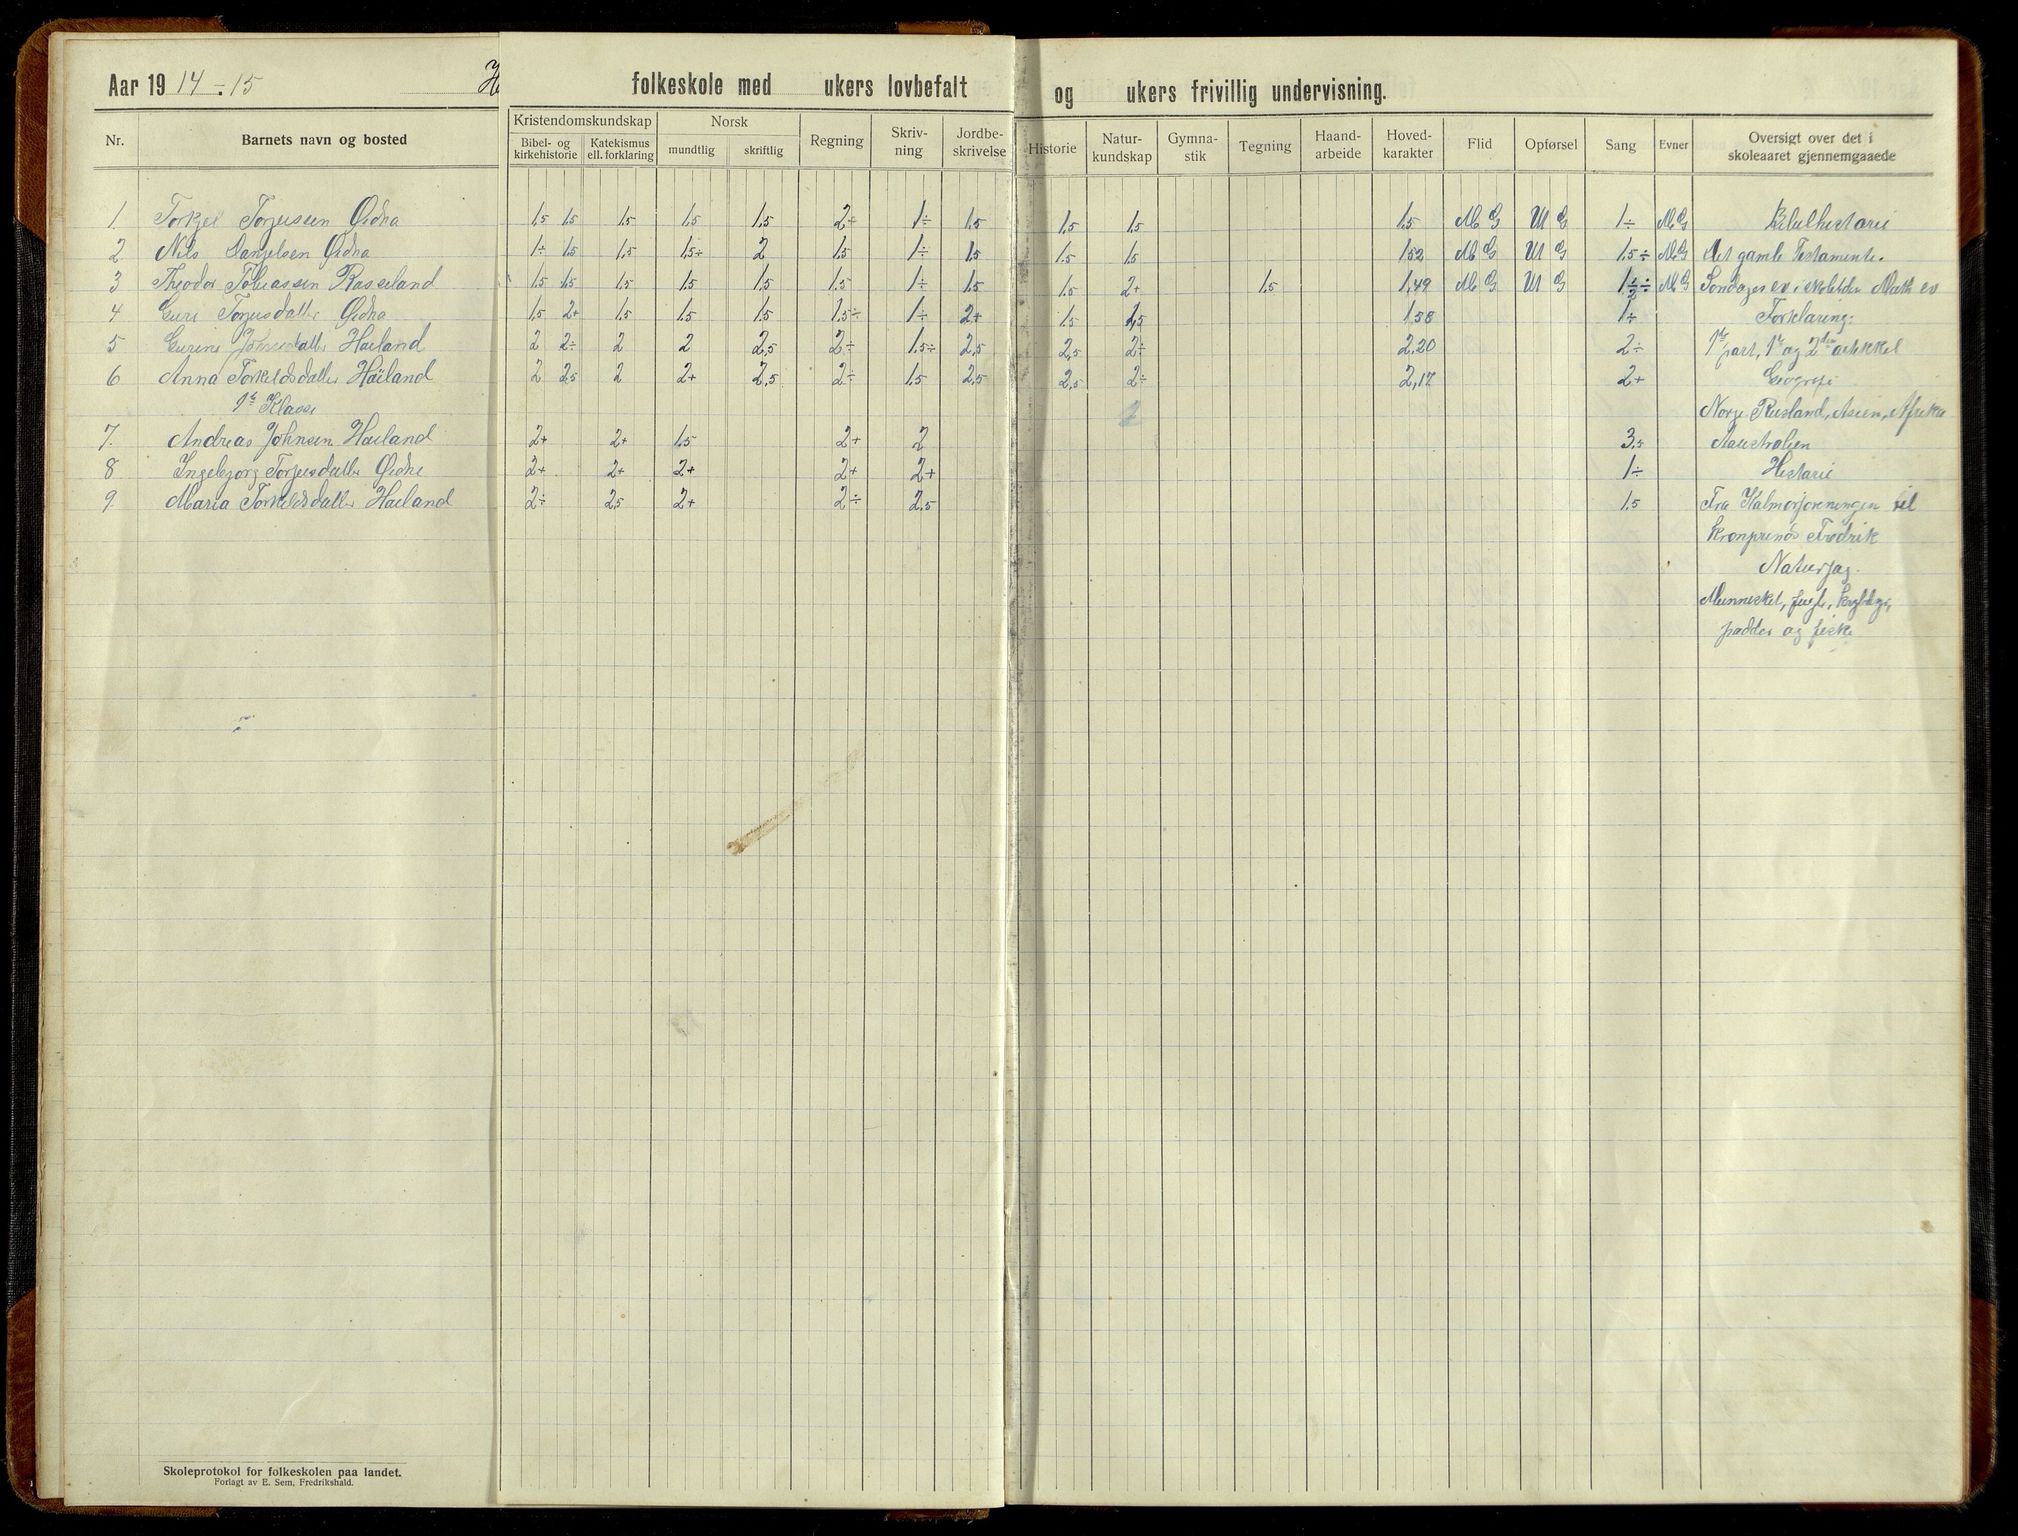 Aar 19 14-15
folkeskole med ukers lovbefalt og ukers frivillig undervisning.
Nr. Barnets navn og bosted Kristendomskundskap Norsk Regning Skriv-ning Jordbe-skrivelse Historie Natur-kundskap Gymna-stik Tegning Haand-arbeide Hoved-karakter Flid Opførsel Sang Evner Oversigt over det i
Bibel- og kirkehistorie Katekismus ell. forklaring mundtlig skriftlig skoleaaret gjennemgaaede
1. Torkjel Torjussen Øidna 1,5 1,5 1,5 1,5 1,5 2+ 1÷ 1,5 1,5 1,5 1,5 M G M G 1÷ M G Bibelhistorie
2 Nils Danjelsen Øidna 1÷ 1,5 1,5 1,5÷ 2 1,5 1÷ 1,5 1,5 1,5 1,52 M G M G 1,5÷ M G Det gamle Testamente.
3 Theodor Tobiassen Rosseland 1,5 1,5 1,5 1,5 1,5 1,5 1÷ 1,5 1,5 2+ 1,5 1,49 M G M G M G Søndages ev i skoletiden Math ev
4 Guri Torjusdatter Øidna 1,5 2+ 1,5 1,5 1,5 1,5÷ 1÷ 2+ 1,5 1,5 1,58 1÷ Forklaring:
5 Gurine Johnsdatter Hailand 2 2÷ 2 2 2,5 2÷ 1,5÷ 2,5 2,5 2÷ 2,20 2÷ 1ste part, 1ste og 2den artikkel
6 Anna Torkeldsdatter Hailand 2 2,5 2 2+ 2,5 2÷ 1,5 2,5 2,5 2÷ 2,17 2+ Geografi
1ste Klasse Norge Rusland, Asien, Afrika
7. Andreas Johnsen Hailand 2+ 2+ 1,5 2+ 2 3,5 Australien
8 Ingebjorg Torjusdatter Øidne 2+ 2+ 2+ 2+ 2+ 1÷ Historie
9. Maria Torkeldsdatter Hailand 2÷ 2,5 2+ 2÷ 2,5 1,5 Fra Kalmarforeningen til
kronprinds Fredrik
Naturfag.
Mennesket, fugle, krybdyr,
padder og fiske
Skoleprotokol for folkeskolen paa landet.
Forlagt av E. Sem, Fredrikshald.